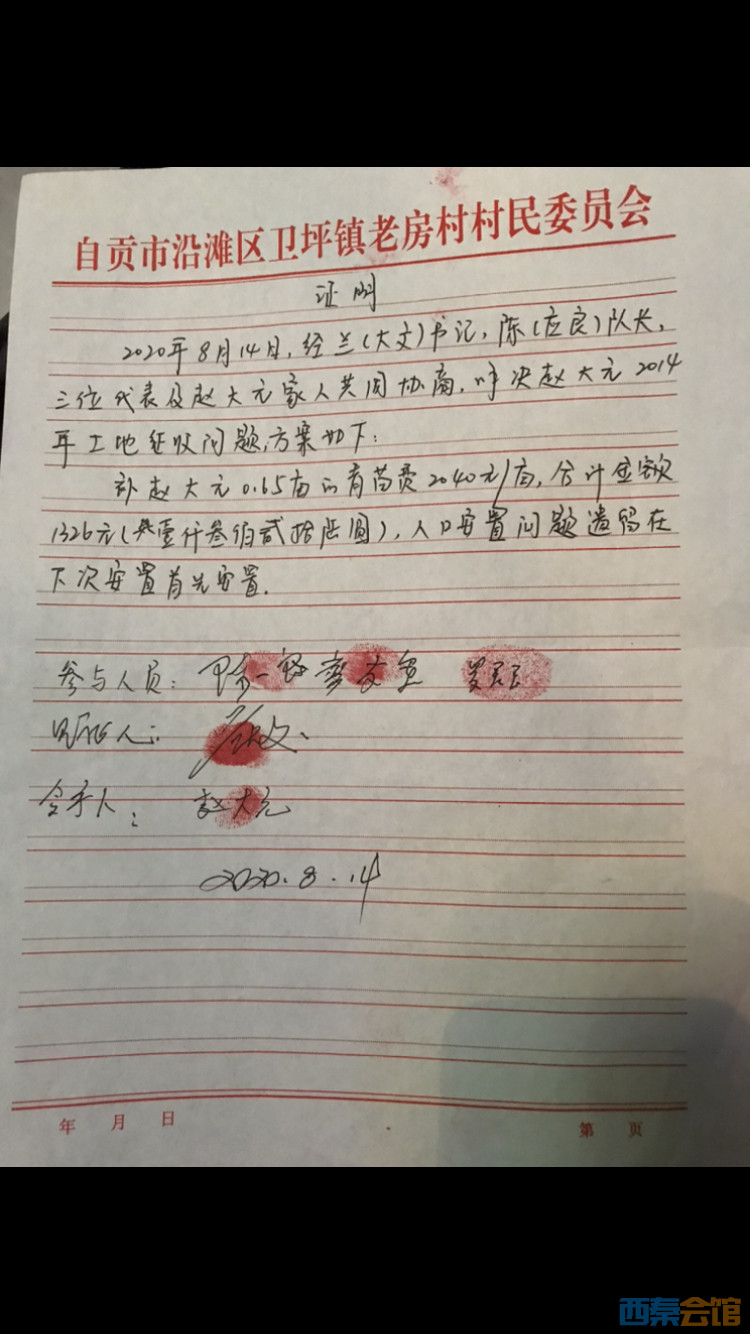 自贡市沿滩区卫坪镇老房村村民委员会
证明
2020年8月14日,经兰(大文)书记,陈(应良)队长,
三位代表及赵大元家人共同协商,解决赵大元2014
年土地征收问题,方案如下:
补赵大元0.65亩的青苗费2040元/亩,合计金额
1326元(壹仟叁佰贰拾陆圆),人口安置问题遗留在
下次安置首先安置.
参与人员:
见证人:
合手人:赵大元
2020.8.14
年 月 日
第 页
西秦会馆